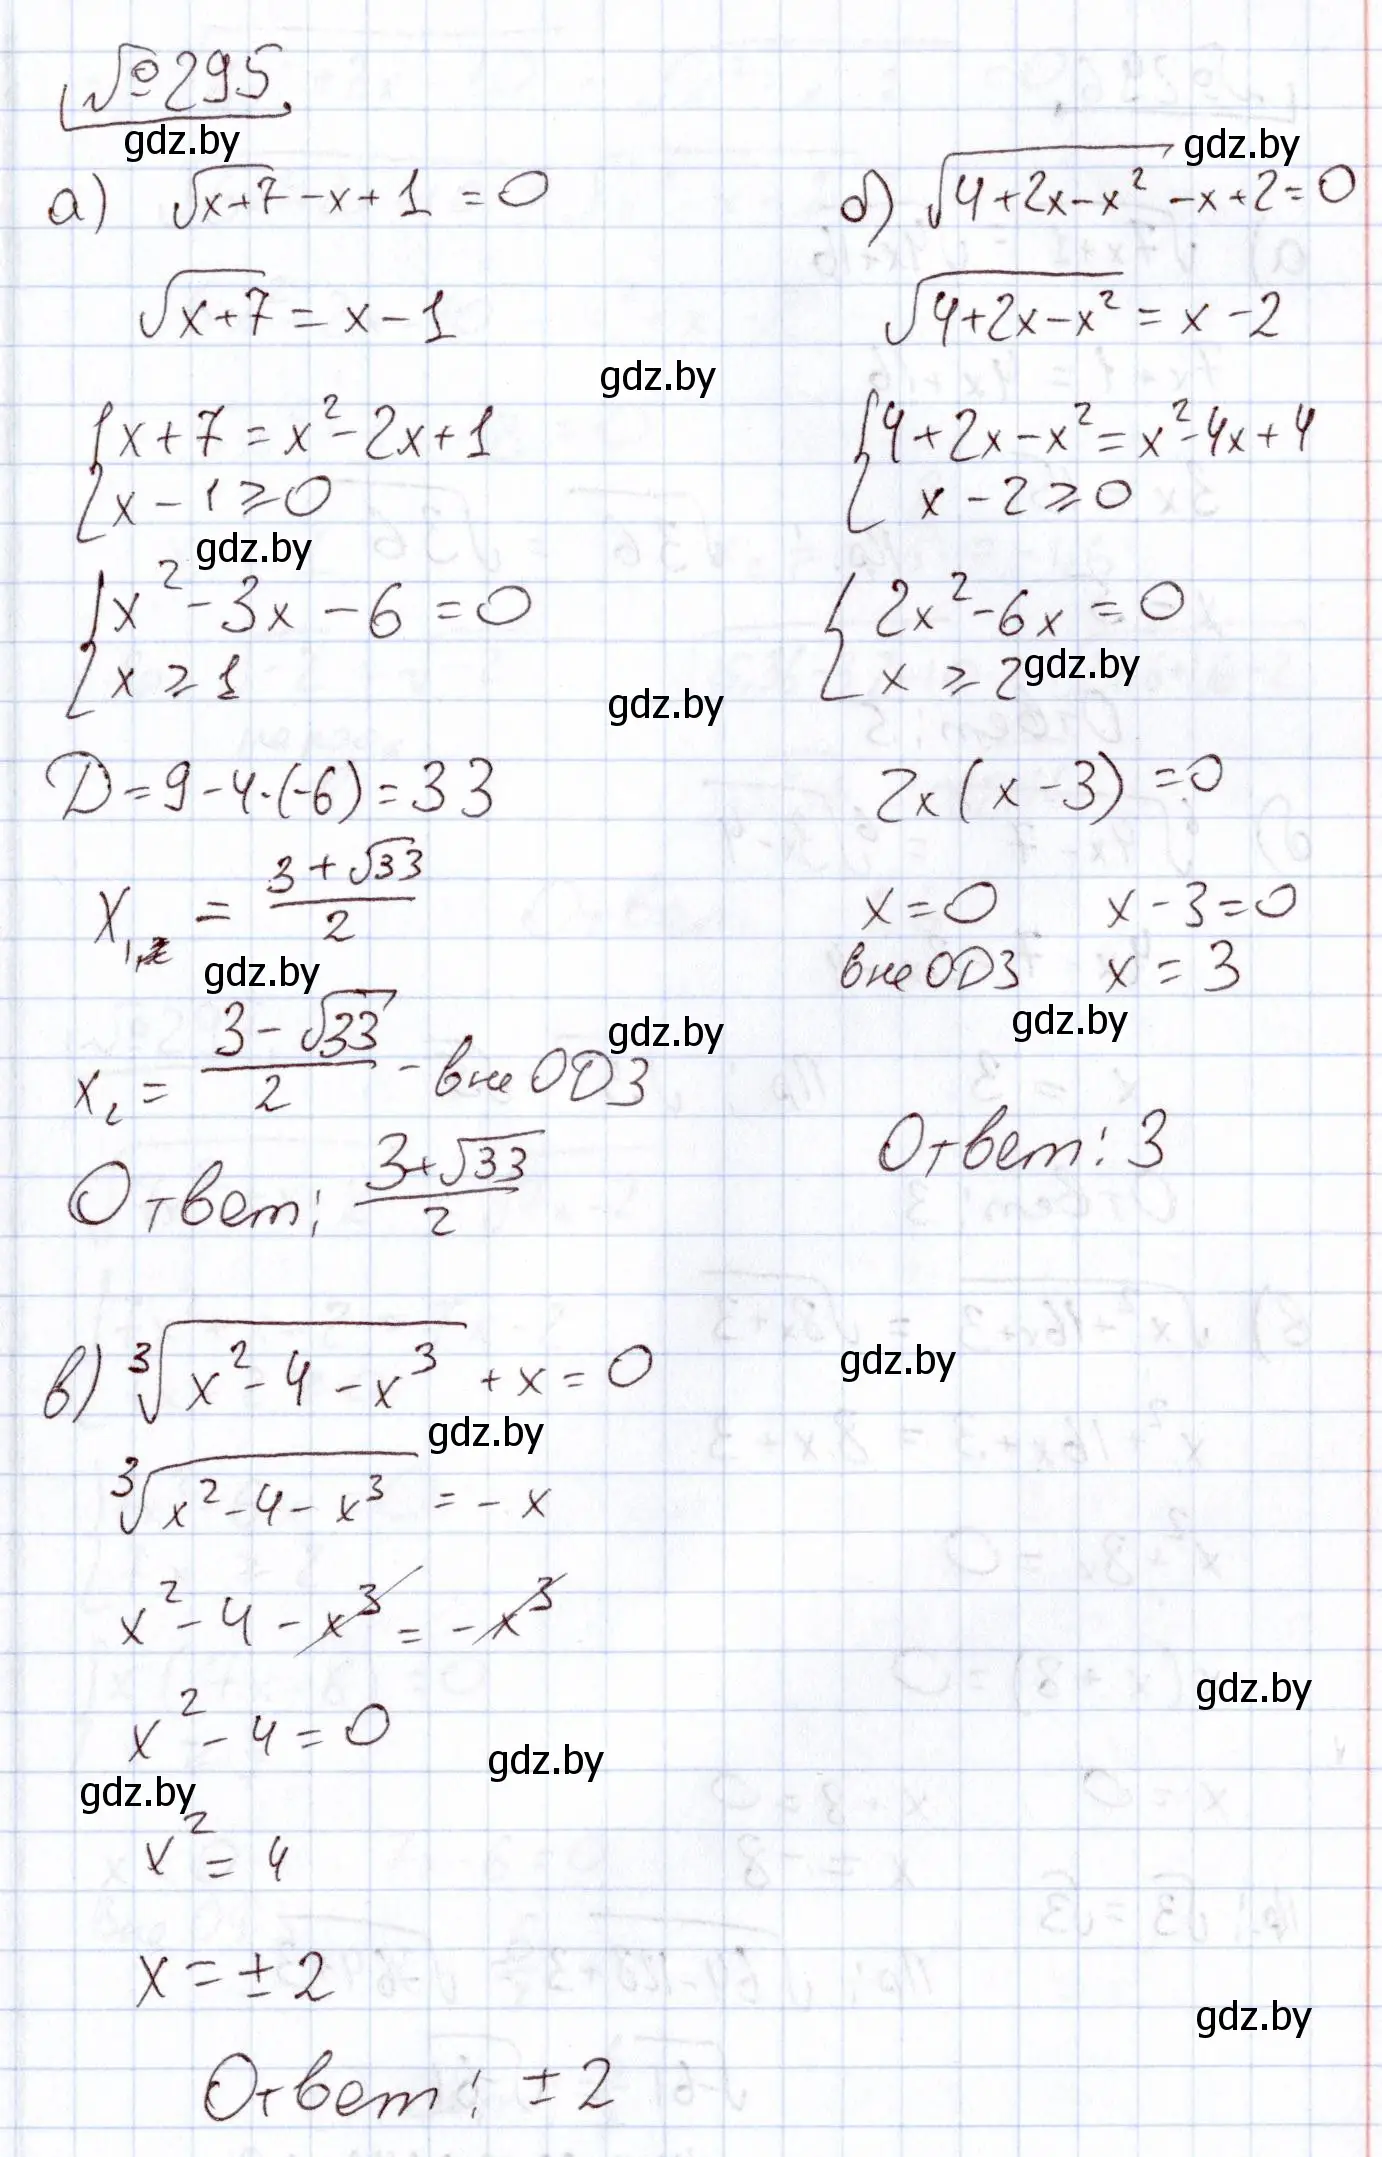 №295.
gdz.by
а) √(x+7) - x + 1 = 0
√(x+7) = x - 1
gdz.by
{ x + 7 = x² - 2x + 1
{ x - 1 ≥ 0
gdz.by
{ x² - 3x - 6 = 0
{ x ≥ 1
gdz.by
D = 9 - 4·(-6) = 33
x₁ = (3 + √33)/2
gdz.by
x₂ = (3 - √33)/2 - вне ОДЗ
gdz.by
Ответ: (3 + √33)/2
gdz.by
б) √(4 + 2x - x²) - x + 2 = 0
√(4 + 2x - x²) = x - 2
{ 4 + 2x - x² = x² - 4x + 4
{ x - 2 ≥ 0
{ 2x² - 6x = 0
{ x ≥ 2
gdz.by
2x(x - 3) = 0
x = 0 x - 3 = 0
вне ОДЗ x = 3
gdz.by
Ответ: 3
в) ³√(x² - 4 - x³) + x = 0
gdz.by
gdz.by
³√(x² - 4 - x³) = - x
x² - 4 - x³ = - x³
gdz.by
x² - 4 = 0
gdz.by
gdz.by
x² = 4
x = ± 2
gdz.by
Ответ: ± 2